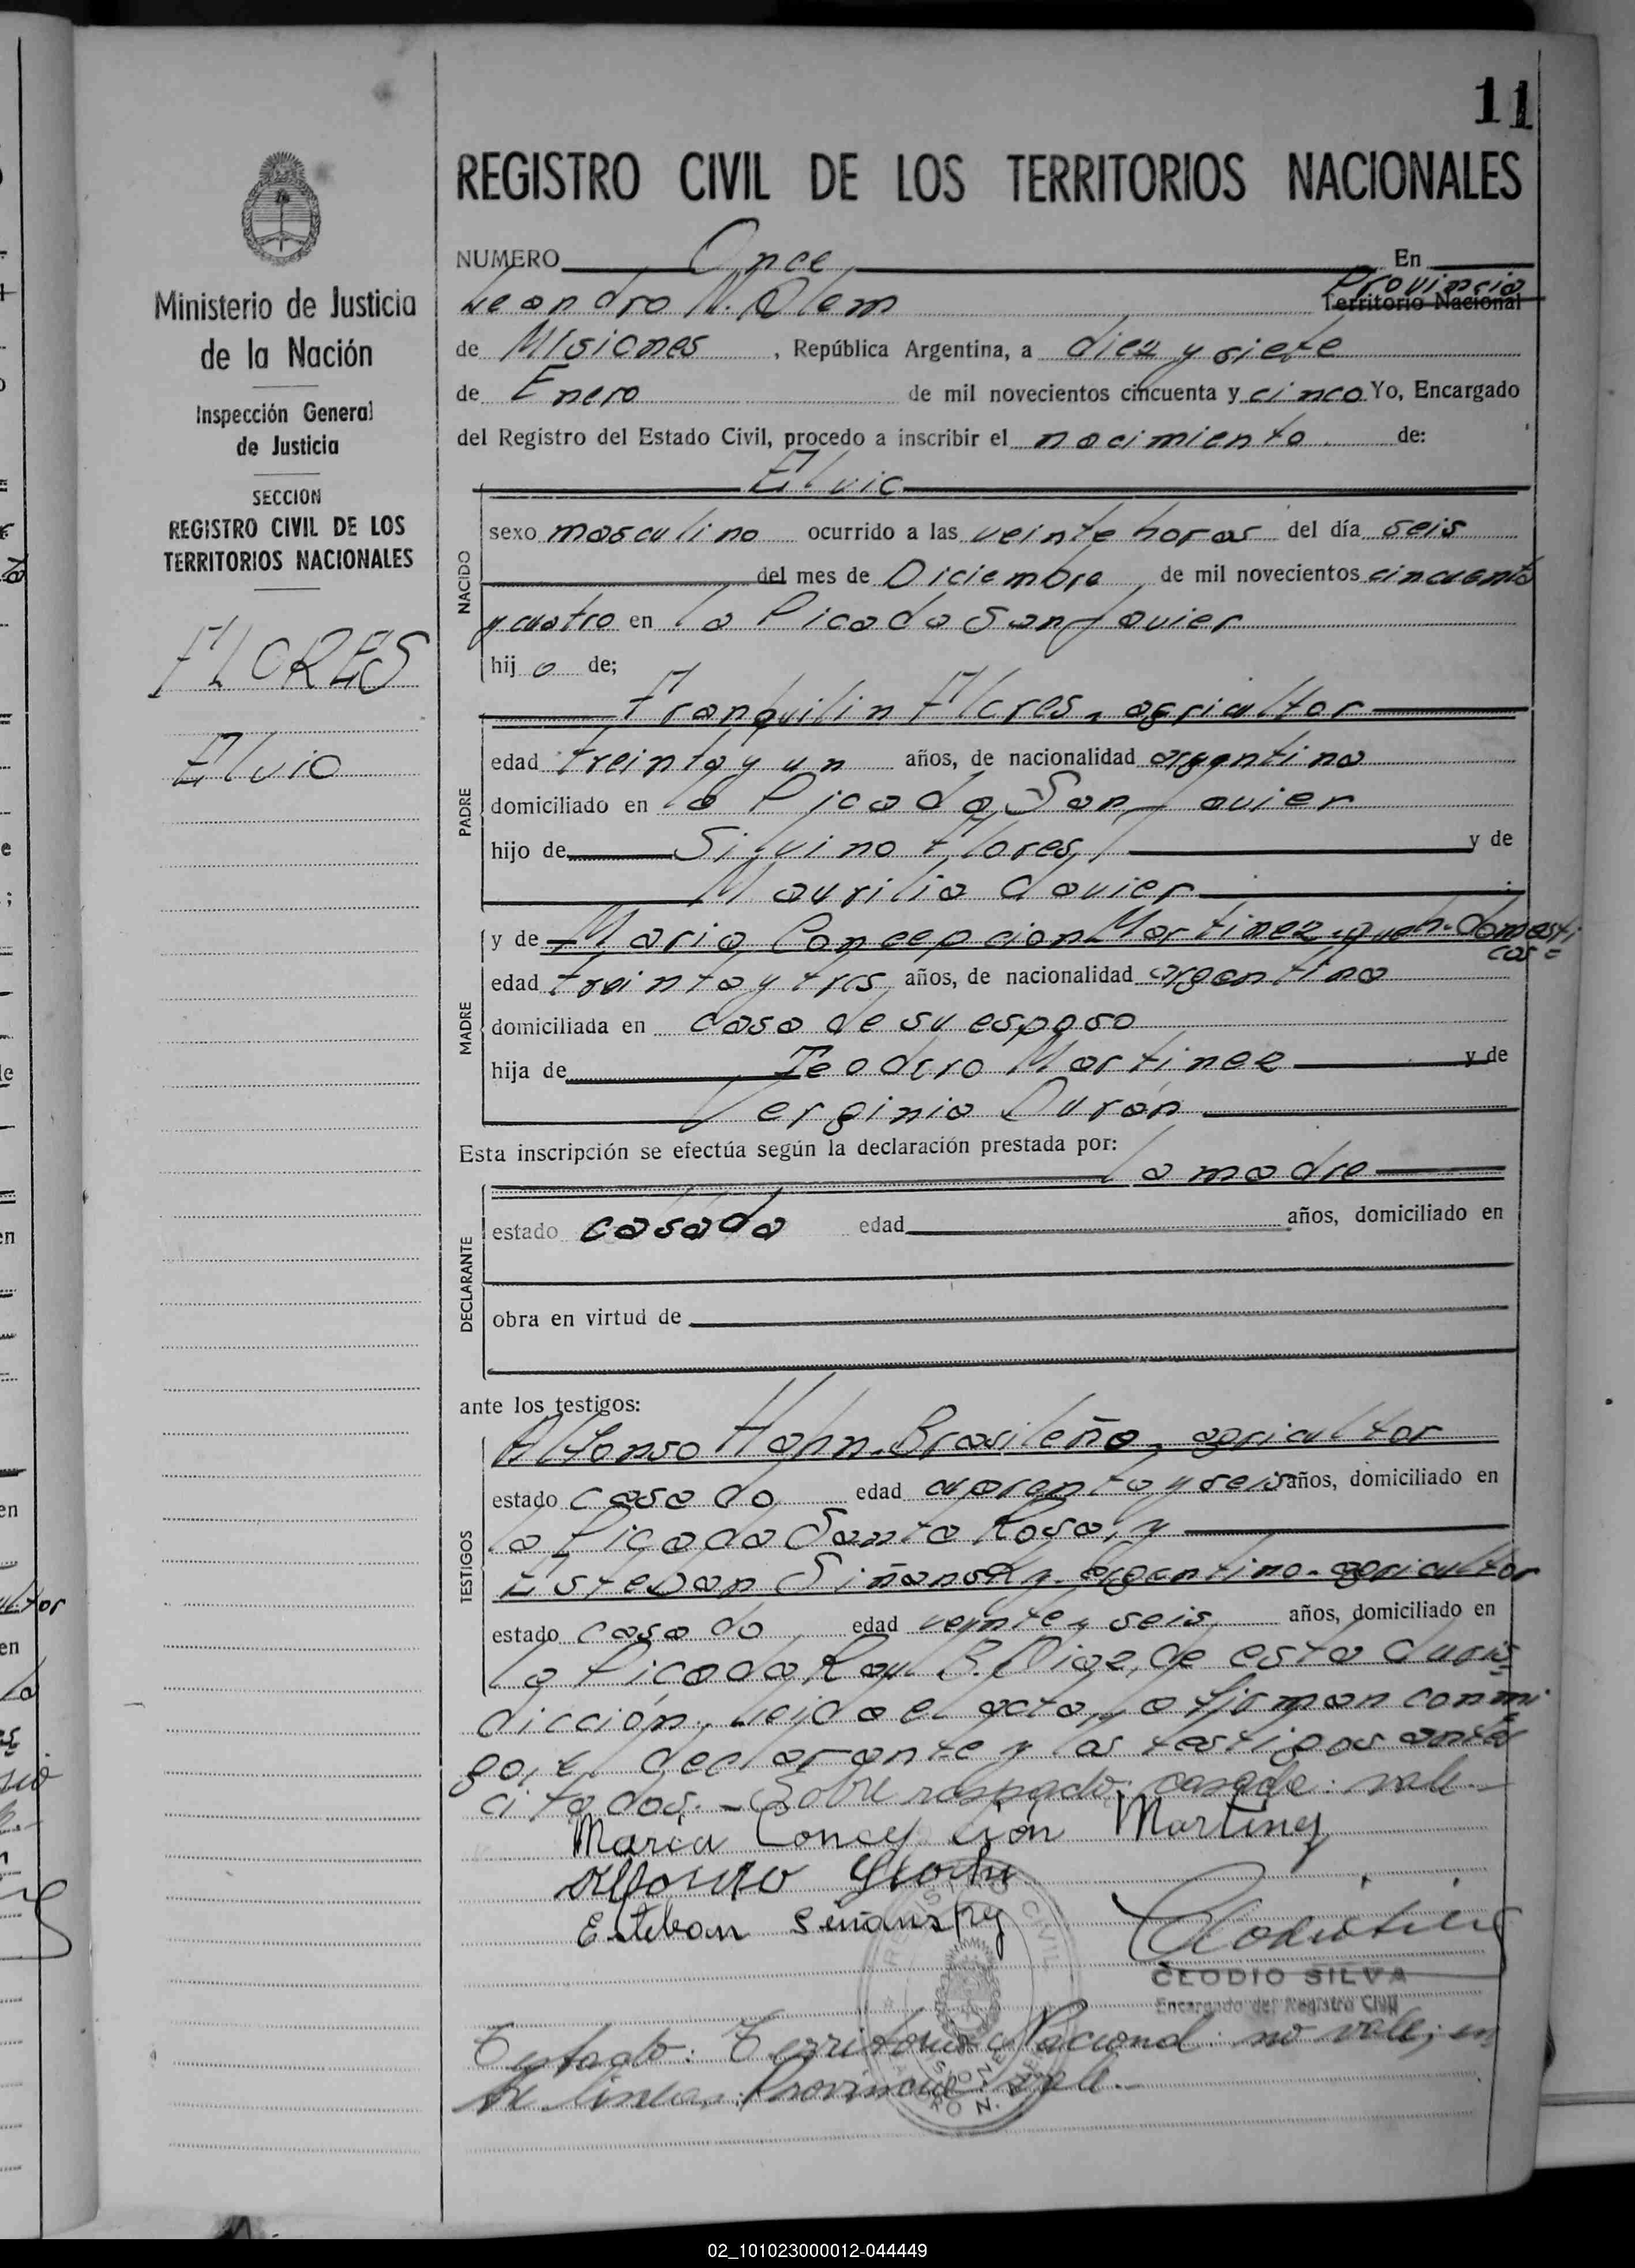 11
REGISTRO CIVIL DE LOS TERRITORIOS NACIONALES
Ministerio de Justicia
de la Nación
Inspección General
de Justicia
SECCION
REGISTRO CIVIL DE LOS
TERRITORIOS NACIONALES
FLORES
Elvio
NUMERO Once En
Leandro N. Alem Provincia Territorio Nacional
de Misiones, República Argentina, a diez y siete
de Enero de mil novecientos cincuenta y cinco Yo, Encargado
del Registro del Estado Civil, procedo a inscribir el nacimiento de:
Elvio
NACIDO
sexo masculino ocurrido a las veinte horas del día seis
del mes de Diciembre de mil novecientos cincuenta
y cuatro en la Picada San Javier
hijo de;
PADRE
Franquilin Flores, agricultor
edad treinta y un años, de nacionalidad argentina
domiciliado en la Picada San Javier
hijo de Silvino Flores y de
Maurilia
MADRE
y de Maria Concepcion Martinez, queh. domesti
cos=
edad treinta y tres años, de nacionalidad argentina
domiciliada en casa de su esposo
hija de Teodoro Martinez y de
Verginia Duran
Esta inscripción se efectúa según la declaración prestada por:
la madre
DECLARANTE
estado casada edad años, domiciliado en
obra en virtud de
ante los testigos:
TESTIGOS
Alfonso Hahn. Brasileño, agricultor
estado casado edad cuarenta y seis años, domiciliado en
la Picada Santa Rosa, y
Esteban Siñansky. argentino. agricultor
estado casado edad veinte y seis años, domiciliado en
la Picada Raul B. Diaz, de esta Juris
dicción, leida el acta, la firman conmi
go, el declarante y los testigos ante
citados.- Sobre raspado: casada: vale.-
Maria Concepción Martinez
Esteban Siñansky
CLODIO SILVA
Encargado del Registro Civil
REGISTRO CIVIL
MISIONES
Testado: Territorio Nacional: no vale; en
tre lineas: Provincia: vale.-
02_101023000012-044449